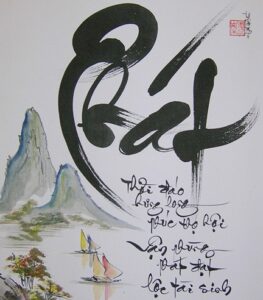 Phát
Thời đáo
hưng long
phúc thọ hội
Vận thông
phát đạt
lộc tài sinh